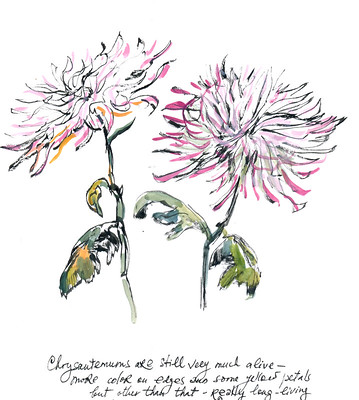 Chrysantemums are still very much alive –
more color on edges and some yellow petals
but other than that – really long-living